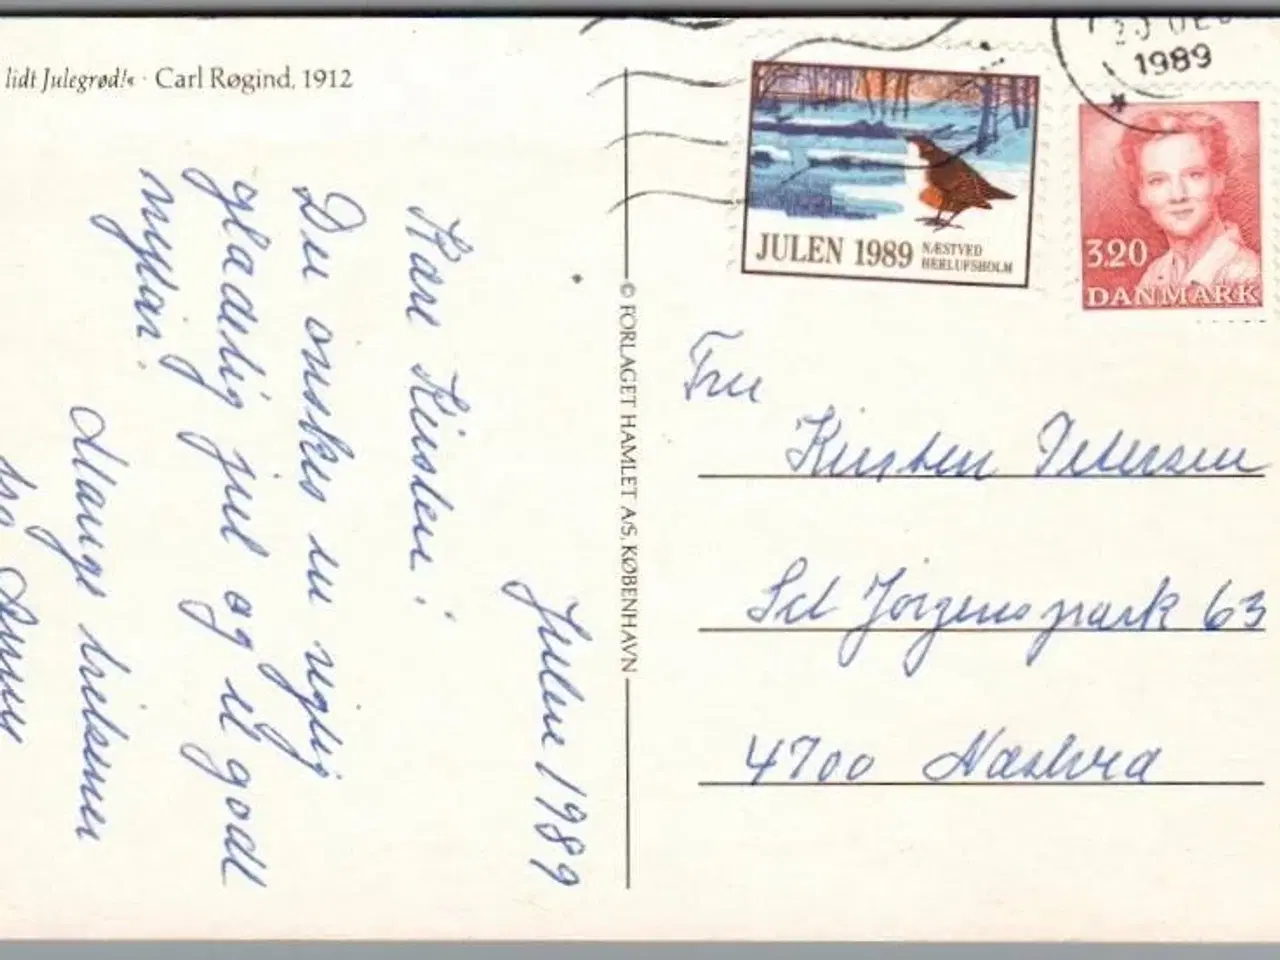 lidt Julegrød!« · Carl Røgind, 1912
Julen 1989
Kære Kirsten!
Du ønskes en rigtig
glædelig jul og et godt
nytår.
Mange hilsner
© FORLAGET HAMLET A/S, KØBENHAVN
1989
JULEN 1989 NÆSTVED
HERLUFSHOLM
3.20
DANMARK
Fru
Kirsten Petersen
Sct Jørgenspark 63
4700 Næstved